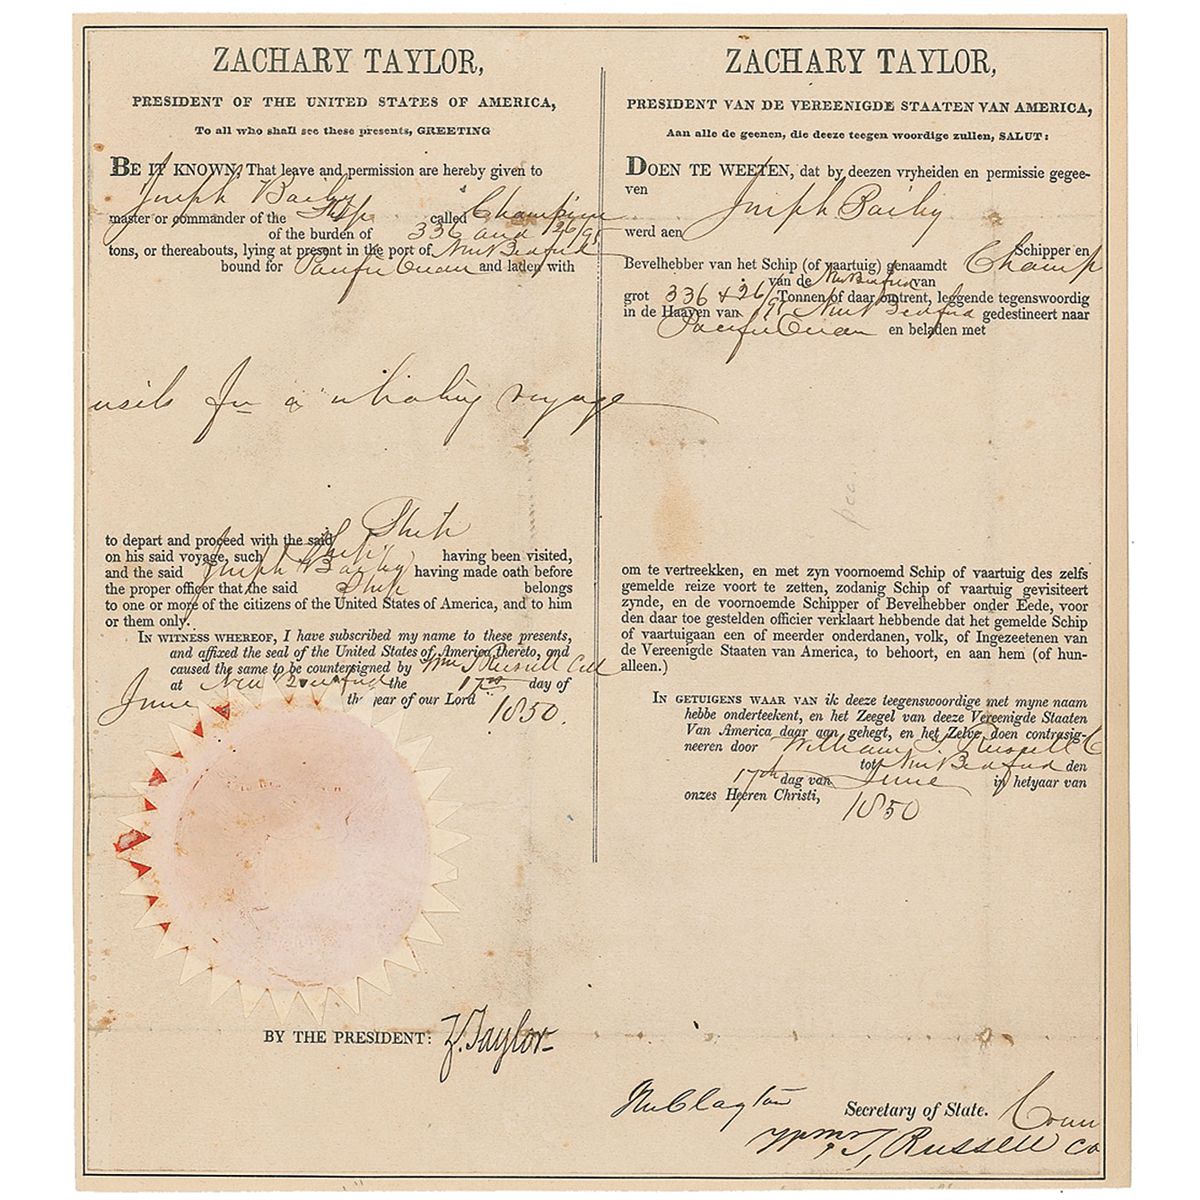 ZACHARY TAYLOR,
PRESIDENT OF THE UNITED STATES OF AMERICA,
To all who shall see these presents, GREETING
BE IT KNOWN, That leave and permission are hereby given to
Joseph Bailey
master or commander of the Ship called Champion
of the burden of 336 and 26/95
tons, or thereabouts, lying at present in the port of New Bedford
bound for Pacific Ocean and laden with
for a whaling voyage
to depart and proceed with the said Ship
on his said voyage, such Ship having been visited,
and the said Joseph Bailey having made oath before
the proper officer that the said Ship belongs
to one or more of the citizens of the United States of America, and to him
or them only.
IN WITNESS WHEREOF, I have subscribed my name to these presents,
and affixed the seal of the United States of America thereto, and
caused the same to be countersigned by Wm T Russell Coll
at New Bedford the 17th day of
June the year of our Lord 1850.
BY THE PRESIDENT: Z. Taylor
ZACHARY TAYLOR,
PRESIDENT VAN DE VEREENIGDE STAATEN VAN AMERICA,
Aan alle de geenen, die deeze teegen woordige zullen, SALUT:
DOEN TE WEETEN, dat by deezen vryheiden en permissie gegee-
ven Joseph Bailey
werd aen
Schipper en
Bevelhebber van het Schip (of vaartuig) genaamdt Champ
van de New Bedford van
grot 336 & 26/95 Tonnen of daar omtrent, leggende tegenswoordig
in de Haaven van New Bedford gedestineert naar
Pacific Ocean en beladen met
pca
om te vertreekken, en met zyn voornoemd Schip of vaartuig des zelfs
gemelde reize voort te zetten, zodanig Schip of vaartuig gevisiteert
zynde, en de voornoemde Schipper of Bevelhebber onder Eede, voor
den daar toe gestelden officier verklaart hebbende dat het gemelde Schip
of vaartuigaan een of meerder onderdanen, volk, of Ingezeetenen van
de Vereenigde Staaten van America, to behoort, en aan hem (of hun-
alleen.)
IN GETUIGENS WAAR VAN ik deeze teegenswoordige met myne naam
hebbe onderteekent, en het Zeegel van deeze Vereenigde Staaten
Van America daar aan gehegt, en het Zelve doen contrasig-
neeren door William T. Russell C
tot New Bedford den
17th dag van June in hetyaar van
onzes Heeren Christi, 1850
Secretary of State.
Wm T, Russell Co